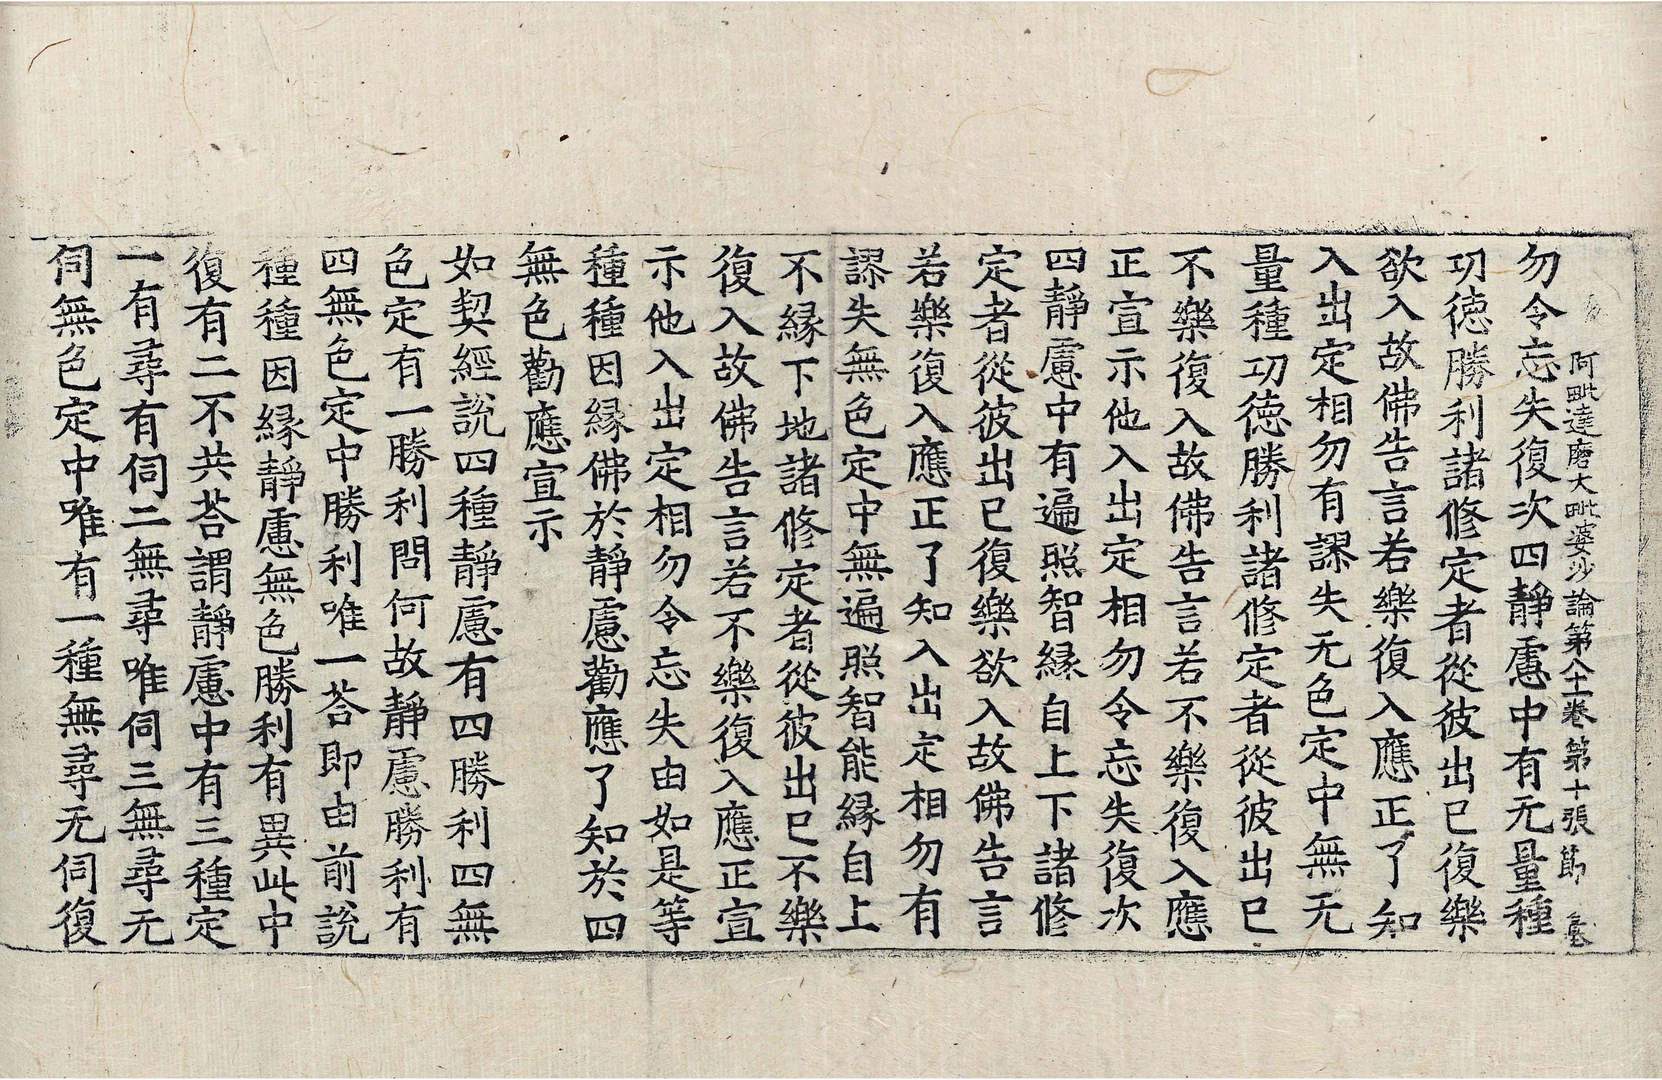 阿毗達磨大毗婆沙論第八十一卷 第十張 節
勿令忘失復次四靜慮中有无量種
功徳勝利諸修定者從彼出已復樂
欲入故佛告言若樂復入應正了知
入出定相勿有謬失无色定中無无
量種功徳勝利諸修定者從彼出已
不樂復入故佛告言若不樂復入應
正宣示他入出定相勿令忘失復次
四靜慮中有遍照智縁自上下諸修
定者從彼出已復樂欲入故佛告言
若樂復入應正了知入出定相勿有
謬失無色定中無遍照智能縁自上
不縁下地諸修定者從彼出已不樂
復入故佛告言若不樂復入應正宣
示他入出定相勿令忘失由如是等
種種因縁佛於靜慮勸應了知於四
無色勸應宣示
如契經說四種靜慮有四勝利四無
色定有一勝利問何故靜慮勝利有
四無色定中勝利唯一荅即由前說
種種因縁靜慮無色勝利有異此中
復有二不共荅謂靜慮中有三種定
一有尋有伺二無尋唯伺三無尋无
伺無色定中唯有一種無尋无伺復